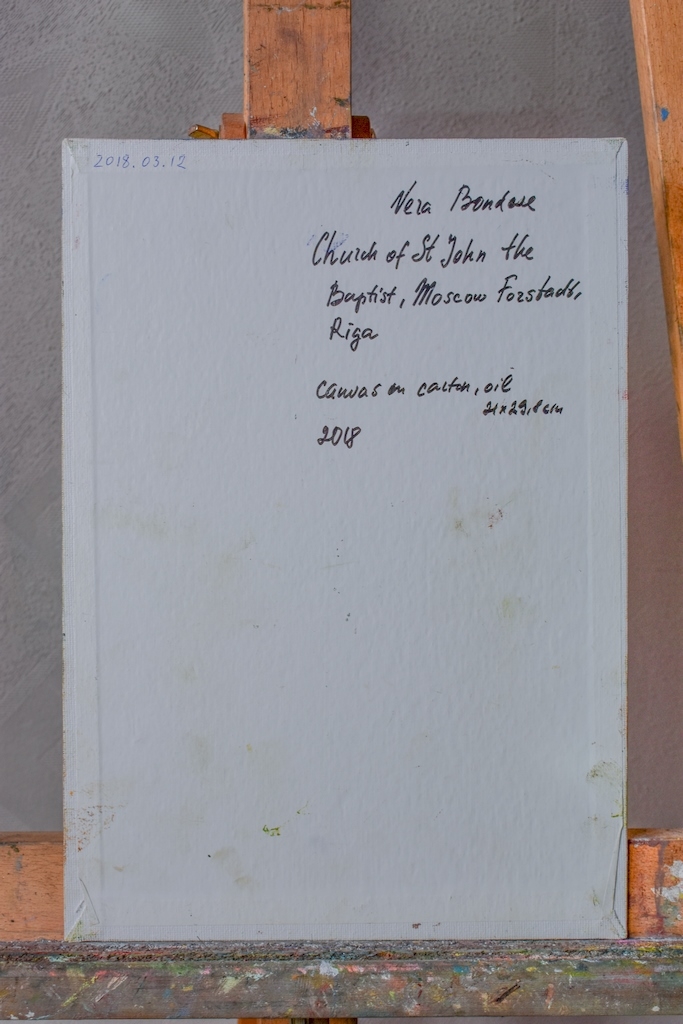 2018.03.12
Vera Bondare
Church of St John the
Baptist, Moscow Forstadt,
Riga
canvas on carton, oil
21x29,8 cm
2018